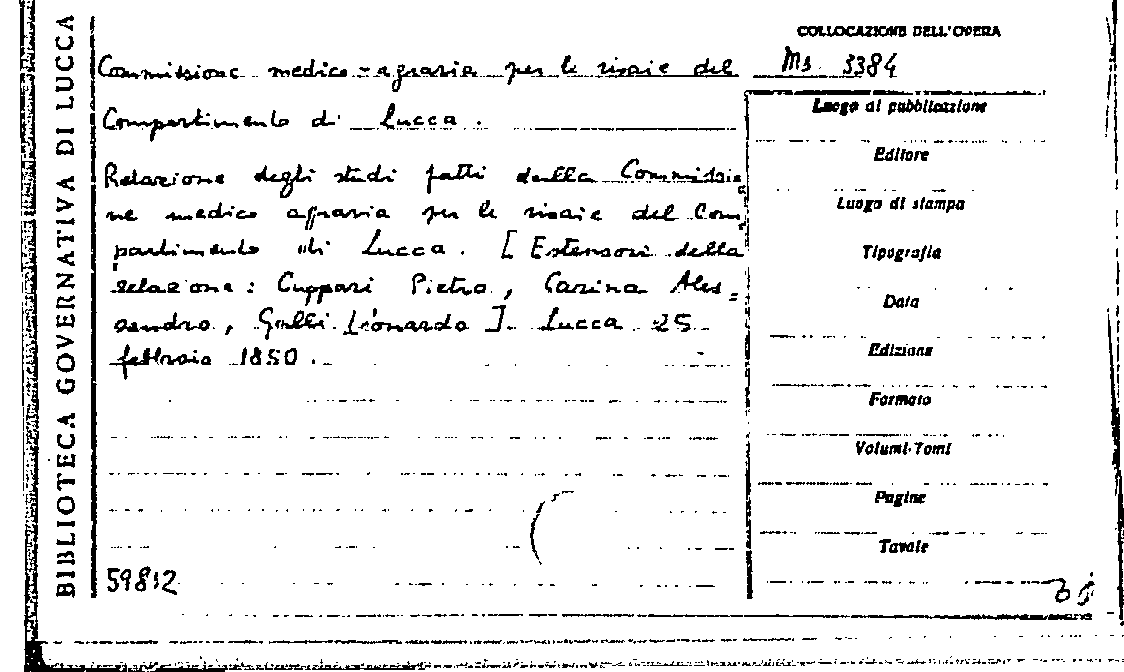 BIBLIOTECA GOVERNATIVA DI LUCCA
COLLOCAZIONE DELL'OPERA
Ms. 3384
Commissione medico-agraria per le risaie del
Compartimento di Lucca.
Relazione degli studi fatti dalla Commissio=
ne medico agraria per le risaie del Com=
partimento di Lucca. [Estensori della
relazione: Cuppari Pietro, Carina Ales=
sandro, Galli Leonardo]. Lucca 25
febbraio 1850.
59812
Luogo di pubblicazione
Editore
Luogo di stampa
Tipografia
Data
Edizione
Formato
Volumi-Tomi
Pagine
Tavole